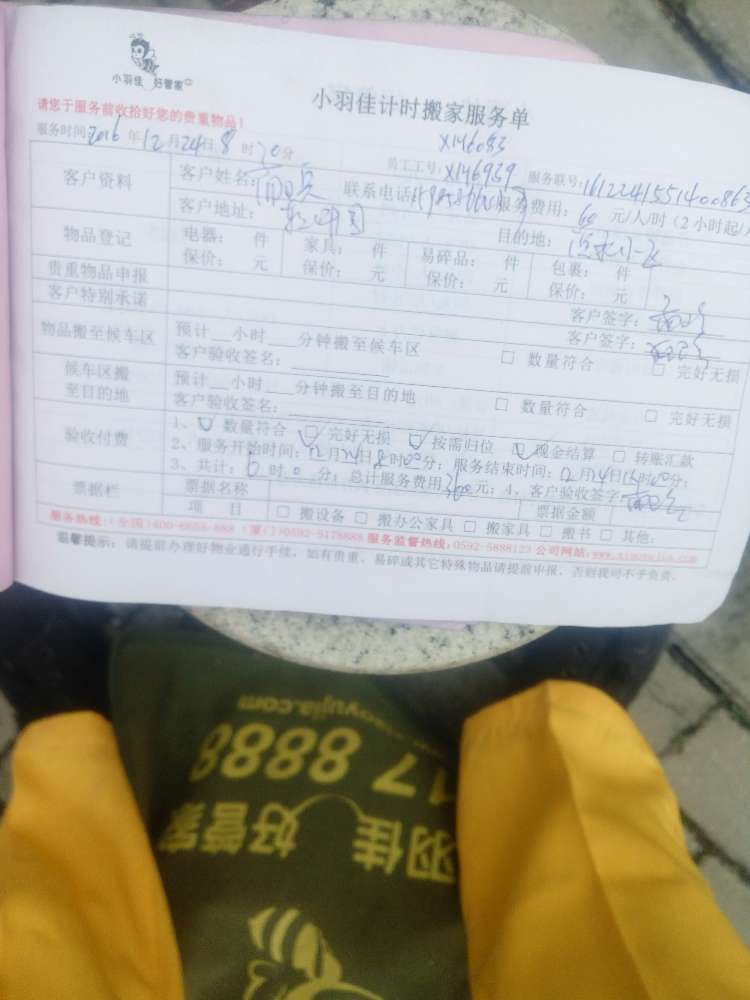 小羽佳 好管家
小羽佳计时搬家服务单
请您于服务前收拾好您的贵重物品!
X146083
服务时间 2016 年 12 月 24 日 8 时 30 分 员工工号: X146939 服务联号: 1612241551400863
客户资料 客户姓名: 联系电话: 服务费用: 60 元/人/时 (2小时起/
客户地址: 目的地:
物品登记 电器: 件 家具: 件 易碎品: 件 包裹: 件
保价: 元 保价: 元 保价: 元 保价: 元
贵重物品申报 客户签字:
客户特别承诺 客户签字:
物品搬至候车区 预计__小时___分钟搬至候车区 □ 数量符合 □ 完好无损
客户验收签名:
候车区搬至目的地 预计__小时___分钟搬至目的地 □ 数量符合 □ 完好无损
客户验收签名:
验收付费 1、□ 数量符合 □ 完好无损 □ 按需归位 □ 现金结算 □ 转账汇款
2、服务开始时间: 12 月 24 日 8 时 00 分; 服务结束时间: 12 月 24 日 时 00 分;
3、共计: 6 时 0 分; 总计服务费用 360 元; 4、客户验收签字
票据栏 票据名称 票据金额
项 目 □ 搬设备 □ 搬办公家具 □ 搬家具 □ 搬书 □ 其他:
服务热线: (全国)400-6655-888 (厦门)0592-5178888 服务监督热线: 0592-5888123 公司网站: www.xiaoyujia.com
温馨提示: 请提前办理好物业通行手续, 如有贵重、易碎或其它特殊物品请提前申报, 否则我司不予负责。
xiaoyujia.com
17 8888
羽佳 好管家